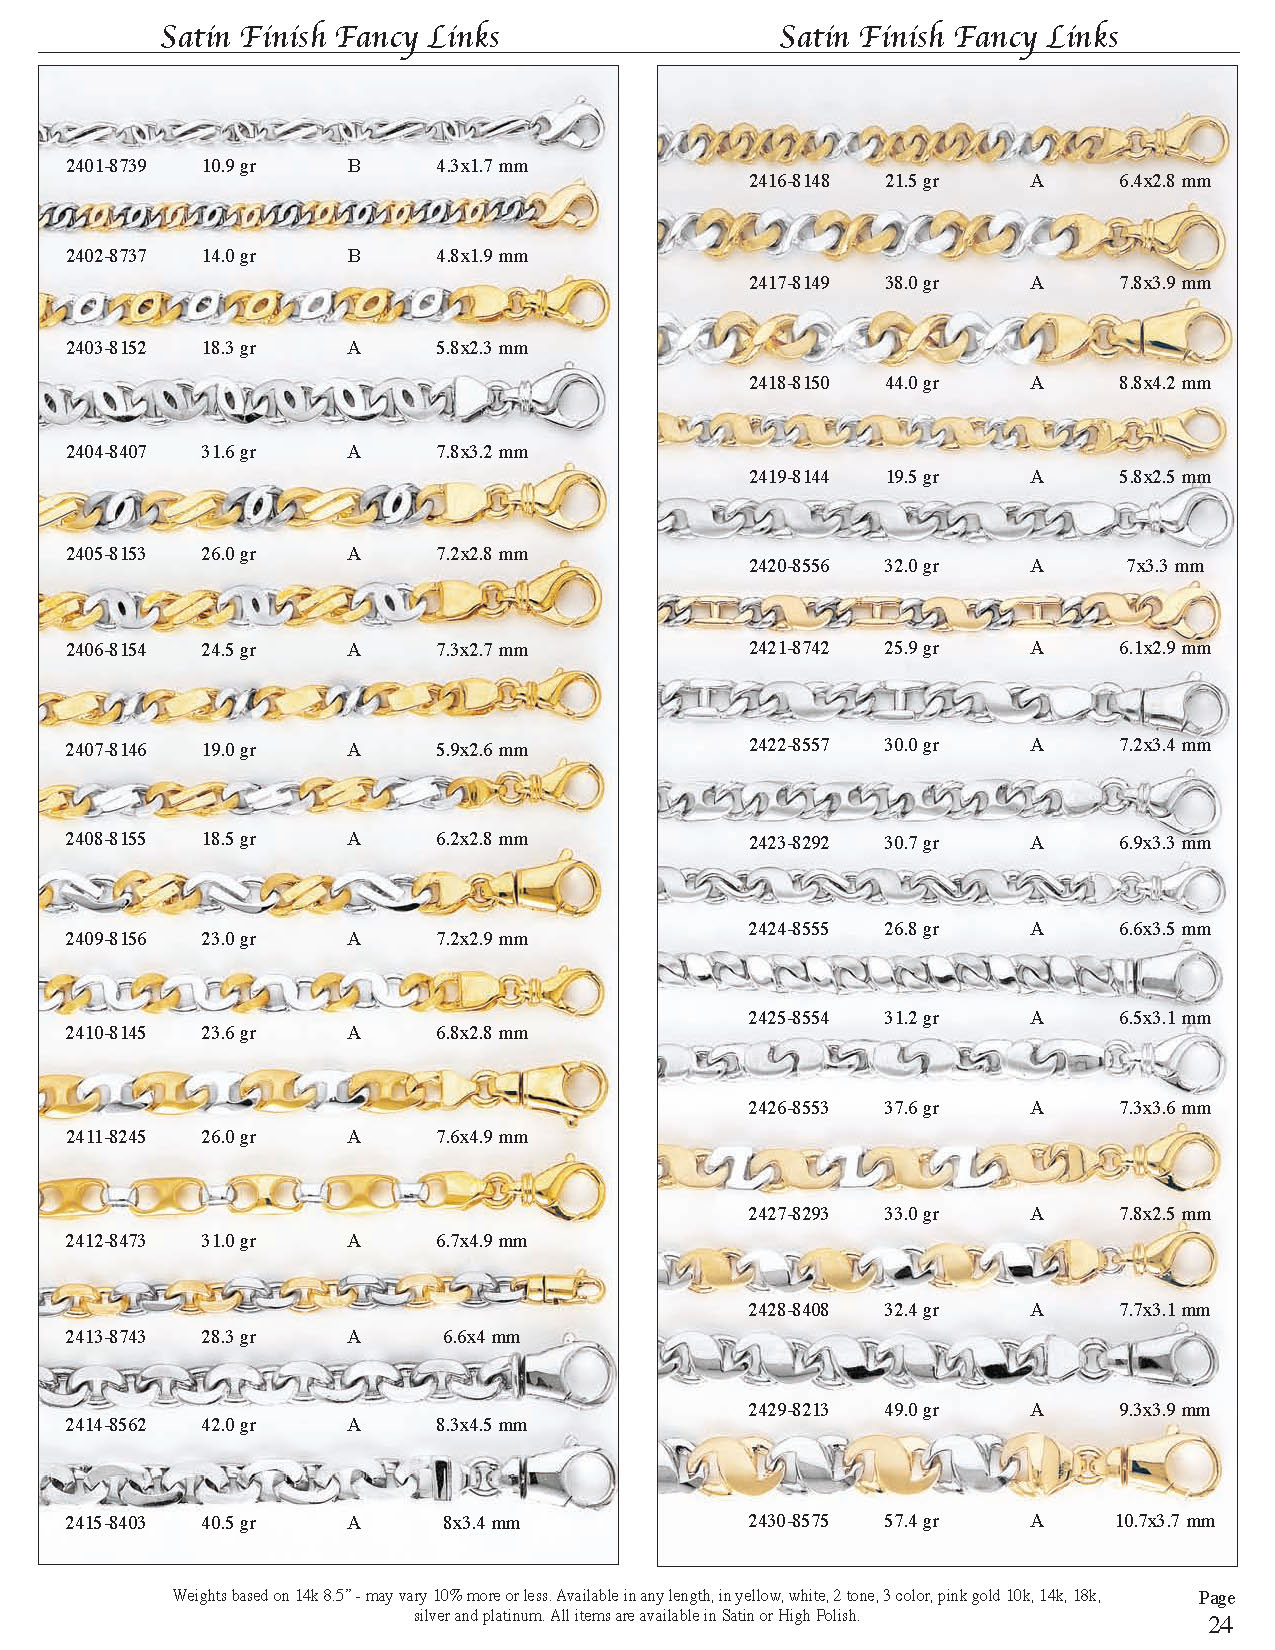 Satin Finish Fancy Links
2401-8739 10.9 gr B 4.3x1.7 mm
2402-8737 14.0 gr B 4.8x1.9 mm
2403-8152 18.3 gr A 5.8x2.3 mm
2404-8407 31.6 gr A 7.8x3.2 mm
2405-8153 26.0 gr A 7.2x2.8 mm
2406-8154 24.5 gr A 7.3x2.7 mm
2407-8146 19.0 gr A 5.9x2.6 mm
2408-8155 18.5 gr A 6.2x2.8 mm
2409-8156 23.0 gr A 7.2x2.9 mm
2410-8145 23.6 gr A 6.8x2.8 mm
2411-8245 26.0 gr A 7.6x4.9 mm
2412-8473 31.0 gr A 6.7x4.9 mm
2413-8743 28.3 gr A 6.6x4 mm
2414-8562 42.0 gr A 8.3x4.5 mm
2415-8403 40.5 gr A 8x3.4 mm
Satin Finish Fancy Links
2416-8148 21.5 gr A 6.4x2.8 mm
2417-8149 38.0 gr A 7.8x3.9 mm
2418-8150 44.0 gr A 8.8x4.2 mm
2419-8144 19.5 gr A 5.8x2.5 mm
2420-8556 32.0 gr A 7x3.3 mm
2421-8742 25.9 gr A 6.1x2.9 mm
2422-8557 30.0 gr A 7.2x3.4 mm
2423-8292 30.7 gr A 6.9x3.3 mm
2424-8555 26.8 gr A 6.6x3.5 mm
2425-8554 31.2 gr A 6.5x3.1 mm
2426-8553 37.6 gr A 7.3x3.6 mm
2427-8293 33.0 gr A 7.8x2.5 mm
2428-8408 32.4 gr A 7.7x3.1 mm
2429-8213 49.0 gr A 9.3x3.9 mm
2430-8575 57.4 gr A 10.7x3.7 mm
Weights based on 14k 8.5" - may vary 10% more or less. Available in any length, in yellow, white, 2 tone, 3 color, pink gold 10k, 14k, 18k,
silver and platinum. All items are available in Satin or High Polish.
Page
24